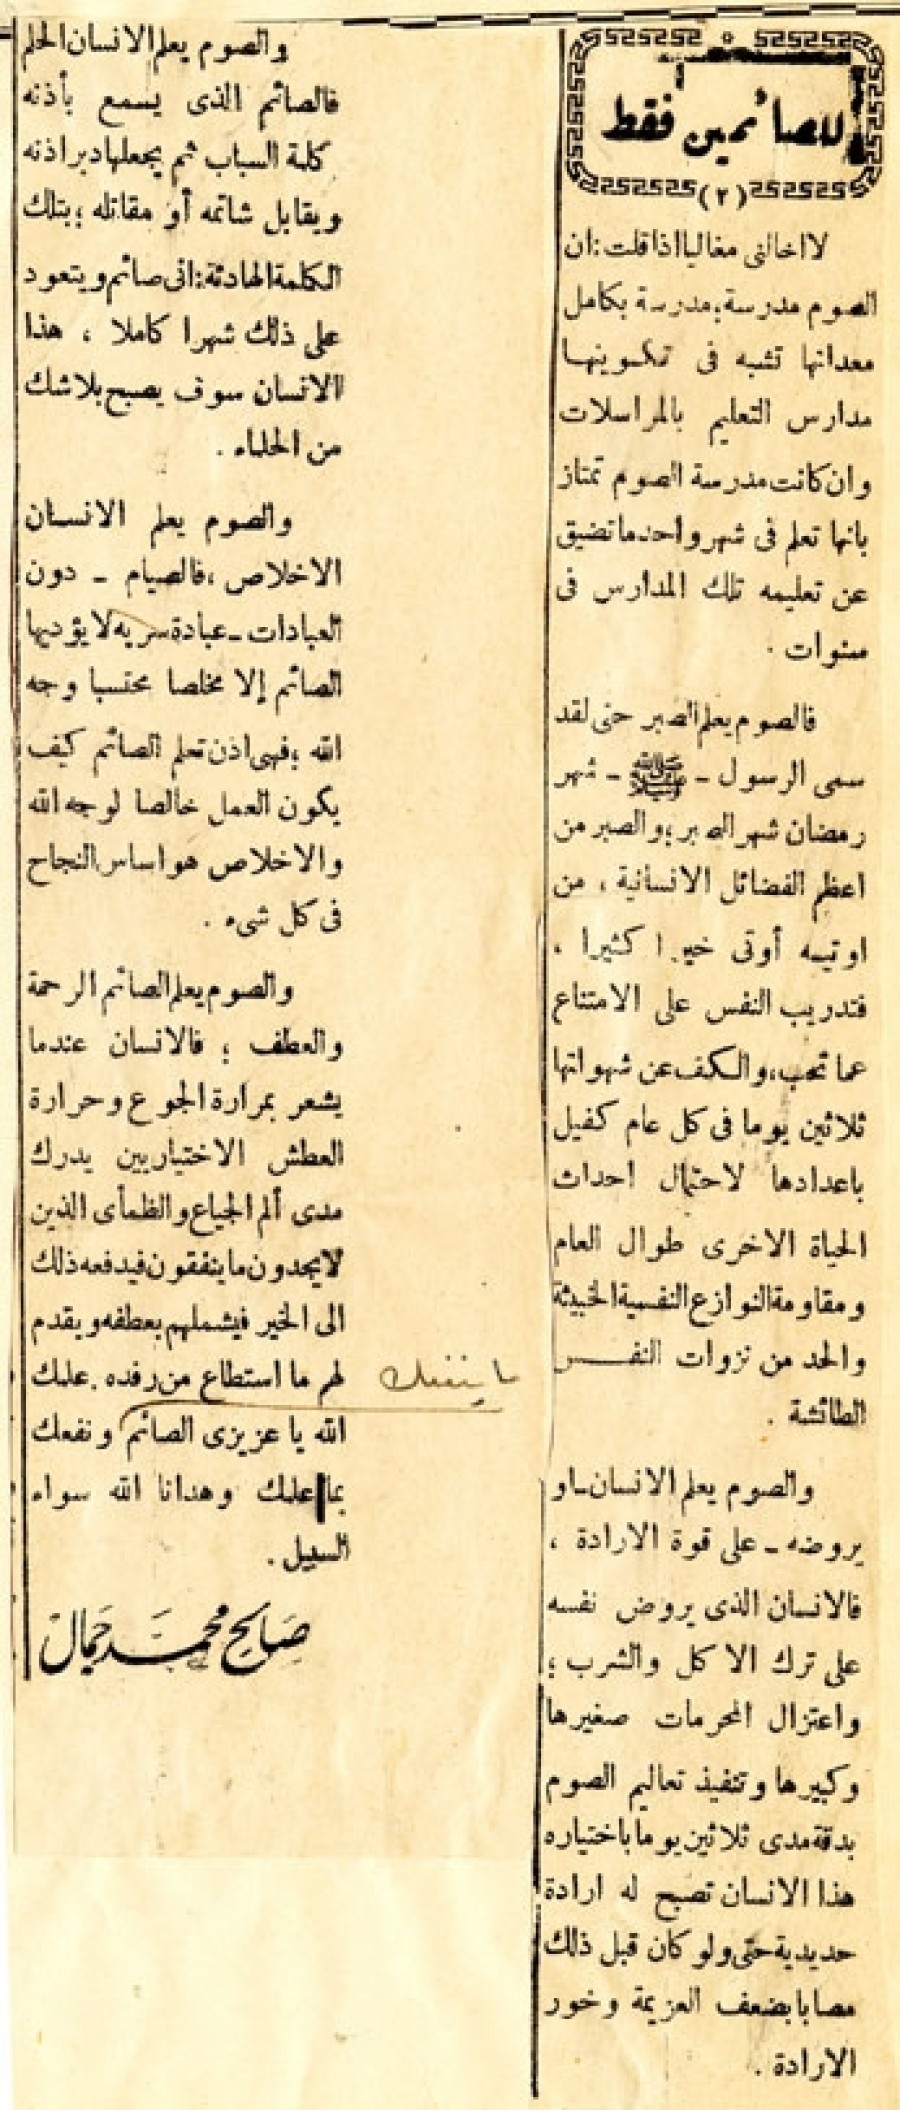 للصائمين فقط
(٢)
لا اخالنى مغاليا اذا قلت : ان
الصوم مدرسة ؛ مدرسة بكامل
معداتها تشبه فى تكوينها
مدارس التعليم بالمراسلات
وان كانت مدرسة الصوم تمتاز
بانها تعلم فى شهر واحد ما تضيق
عن تعليمه تلك المدارس فى
سنوات .
فالصوم يعلم الصبر حتى لقد
سمى الرسول - ﷺ - شهر
رمضان شهر الصبر ؛ والصبر من
اعظم الفضائل الانسانية ، من
اوتيه أوتى خيرا كثيرا ،
فتدريب النفس على الامتناع
عما تحب ، والكف عن شهواتها
ثلاثين يوما فى كل عام كفيل
باعدادها لاحتمال احداث
الحياة الاخرى طوال العام
ومقاومة النوازع النفسية الخبيثة
والحد من نزوات النفس
الطائشة .
والصوم يعلم الانسان - او
يروضه - على قوة الارادة ،
فالانسان الذى يروض نفسه
على ترك الاكل والشرب ؛
واعتزال المحرمات صغيرها
وكبيرها وتنفيذ تعاليم الصوم
بدقة مدى ثلاثين يوما باختياره
هذا الانسان تصبح له ارادة
حديدية حتى ولو كان قبل ذلك
مصابا بضعف العزيمة وخور
الارادة .
والصوم يعلم الانسان الحلم
فالصائم الذى يسمع بأذنه
كلمة السباب ثم يجعلها دبر اذنه
ويقابل شاتمه أو مقاتله ؛ بتلك
الكلمة الهادئة : انى صائم ويتعود
على ذلك شهرا كاملا ، هذا
الانسان سوف يصبح بلا شك
من الحلماء .
والصوم يعلم الانسان
الاخلاص ، فالصيام - دون
العبادات - عبادة سريه لا يؤديها
الصائم إلا مخلصا محتسبا وجه
الله ؛ فهى اذن تعلم الصائم كيف
يكون العمل خالصا لوجه الله
والاخلاص هو اساس النجاح
فى كل شىء .
والصوم يعلم الصائم الرحمة
والعطف ؛ فالانسان عندما
يشعر بمرارة الجوع وحرارة
العطش الاختياريين يدرك
مدى ألم الجياع والظمأى الذين
لا يجدون ما ينفقون فيدفعه ذلك
الى الخير فيشملهم بعطفه ويقدم
لهم ما استطاع من رفده . علمك
ما ينفعك
الله يا عزيزى الصائم ونفعك
بما علمك وهدانا الله سواء
السبيل .
صالح محمد جمال